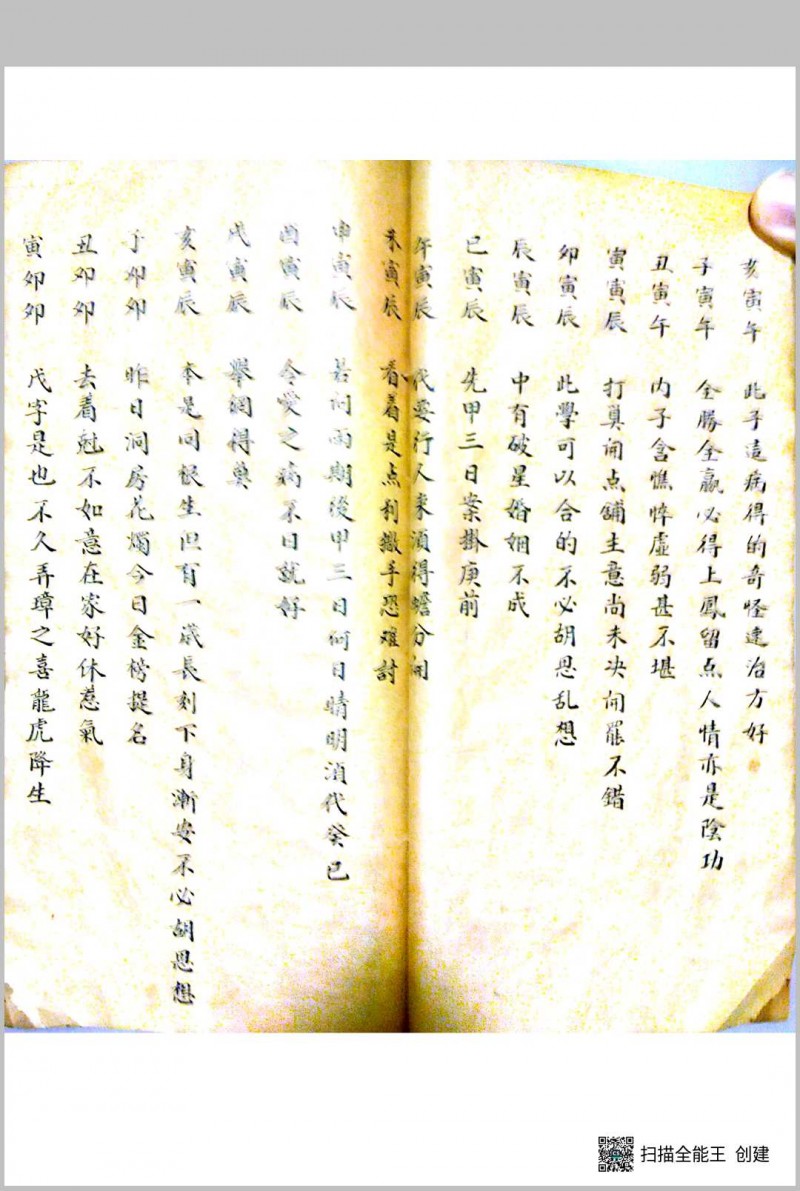 亥寅午 此子這病得的奇怪速治方好
子寅午 全勝全贏必得上鳳留点人情亦是陰功
丑寅午 内子含憔悴虛弱甚不堪
寅寅辰 打真開点舖主意尚未决開罷不錯
卯寅辰 此學可以合的不必胡思乱想
辰寅辰 中有破星婚姻不成
巳寅辰 先甲三日案掛庚前
午寅辰 代要行人来須得蟾分開
未寅辰 看着是点利撒手恐难討
申寅辰 若问雨期後甲三日何日晴明湏代癸已
酉寅辰 令愛之病不日就好
戌寅辰 舉網得奠
亥寅辰 本是同根生但有一歲長刻下身漸安不必胡思想
子卯卯 昨日洞房花燭今日金榜提名
丑卯卯 去着尅不如意在家好休惹氣
寅卯卯 戊字是也不久弄璋之喜龍虎降生
扫描全能王 创建